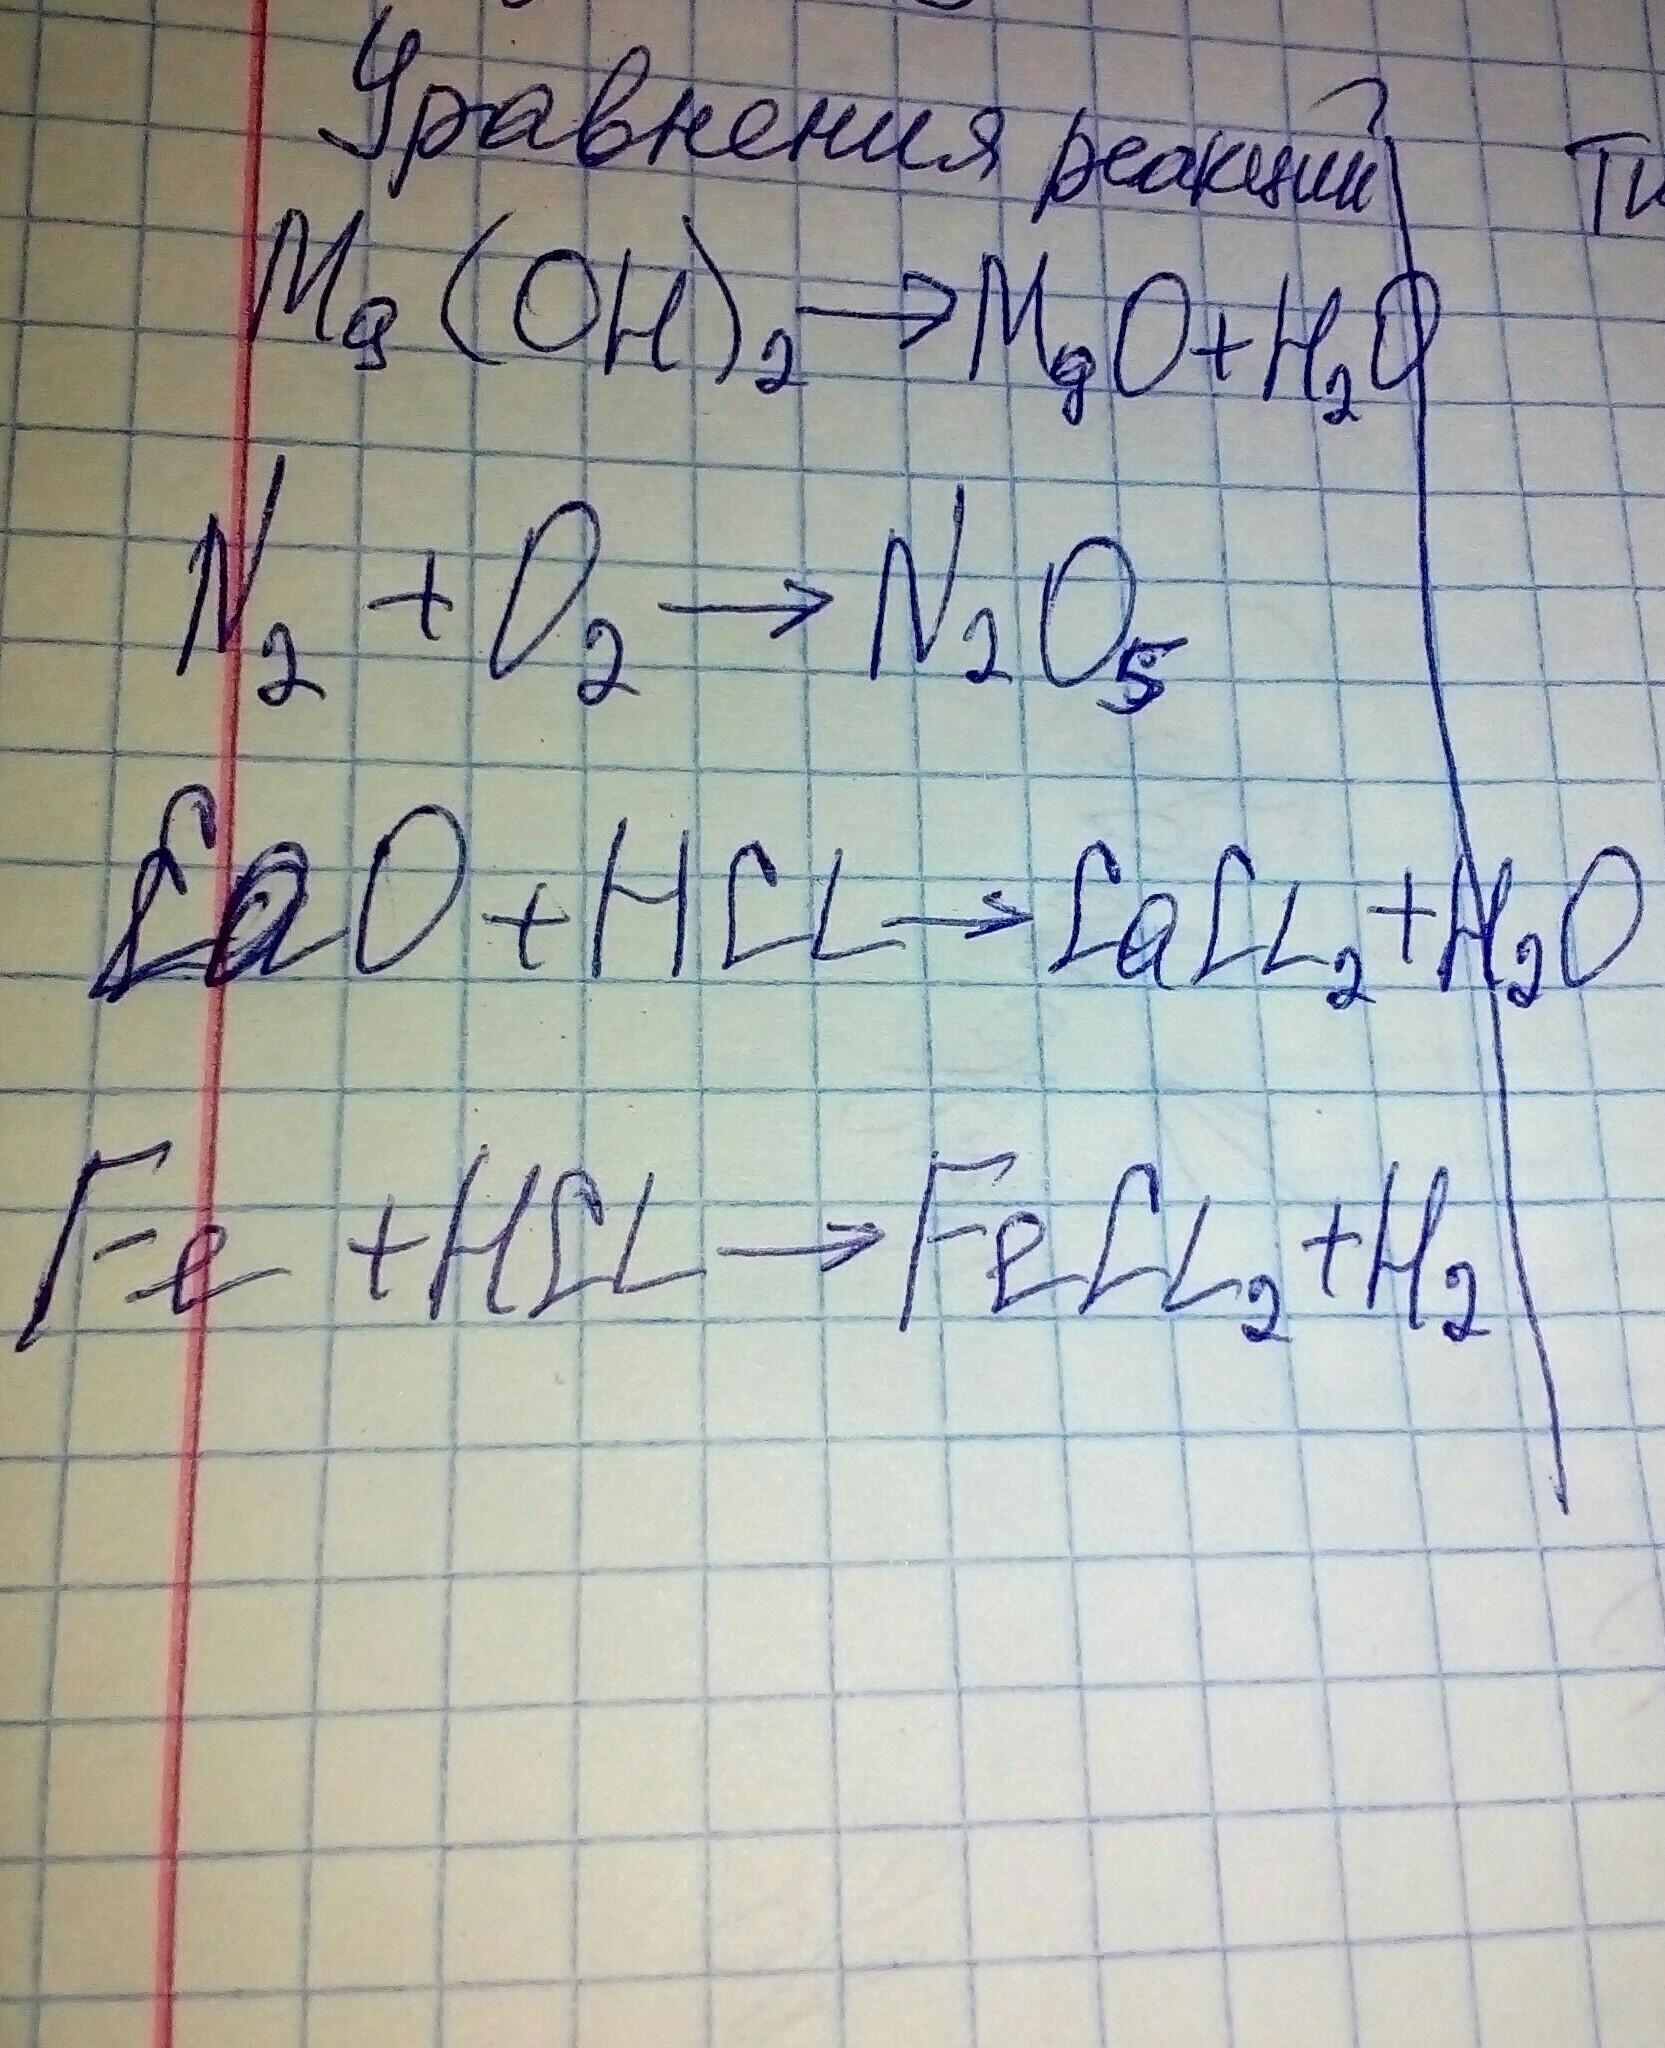 Уравнения реакций Ти
Mg(OH)₂ → MgO + H₂O
N₂ + O₂ → N₂O₅
CaO + HCL → CaCL₂ + H₂O
Fe + HCL → FeCL₂ + H₂